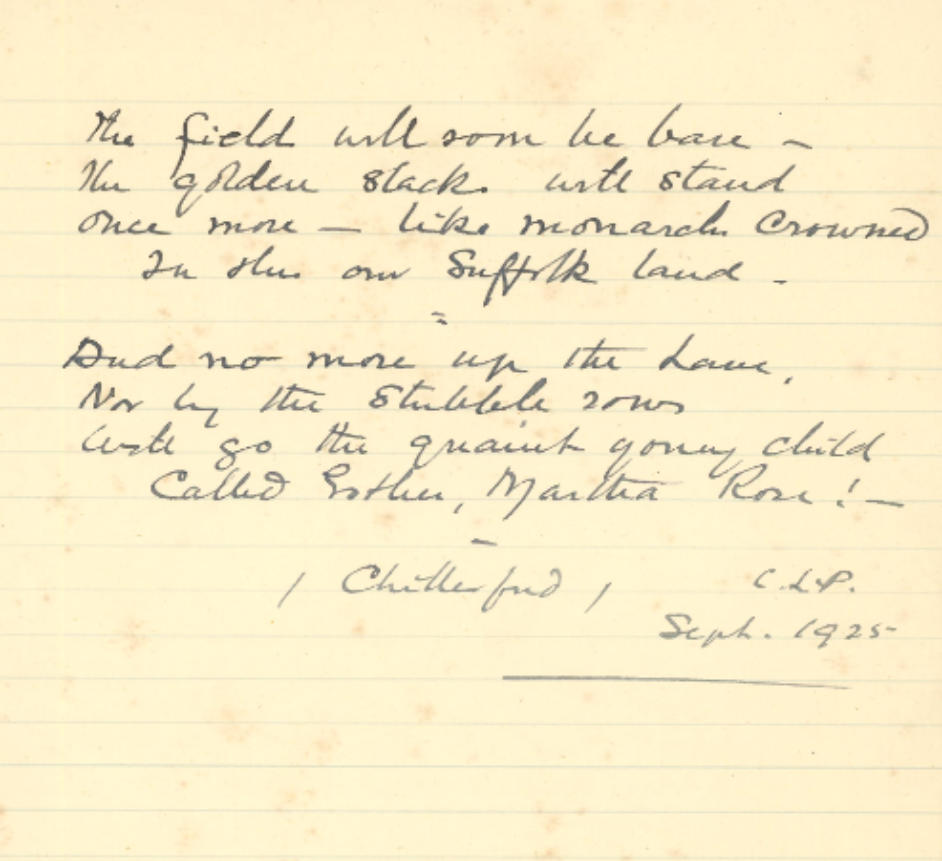 The field will soon be bare –
The golden stacks will stand
Once more – like monarchs Crowned
In this our Suffolk land –
And no more up the Lane,
Nor by the Stubble rows
Will go the quaint young child
Called Esther, Martha Rose! –
/ Chillesford /
C.L.P.
Sept. 1925